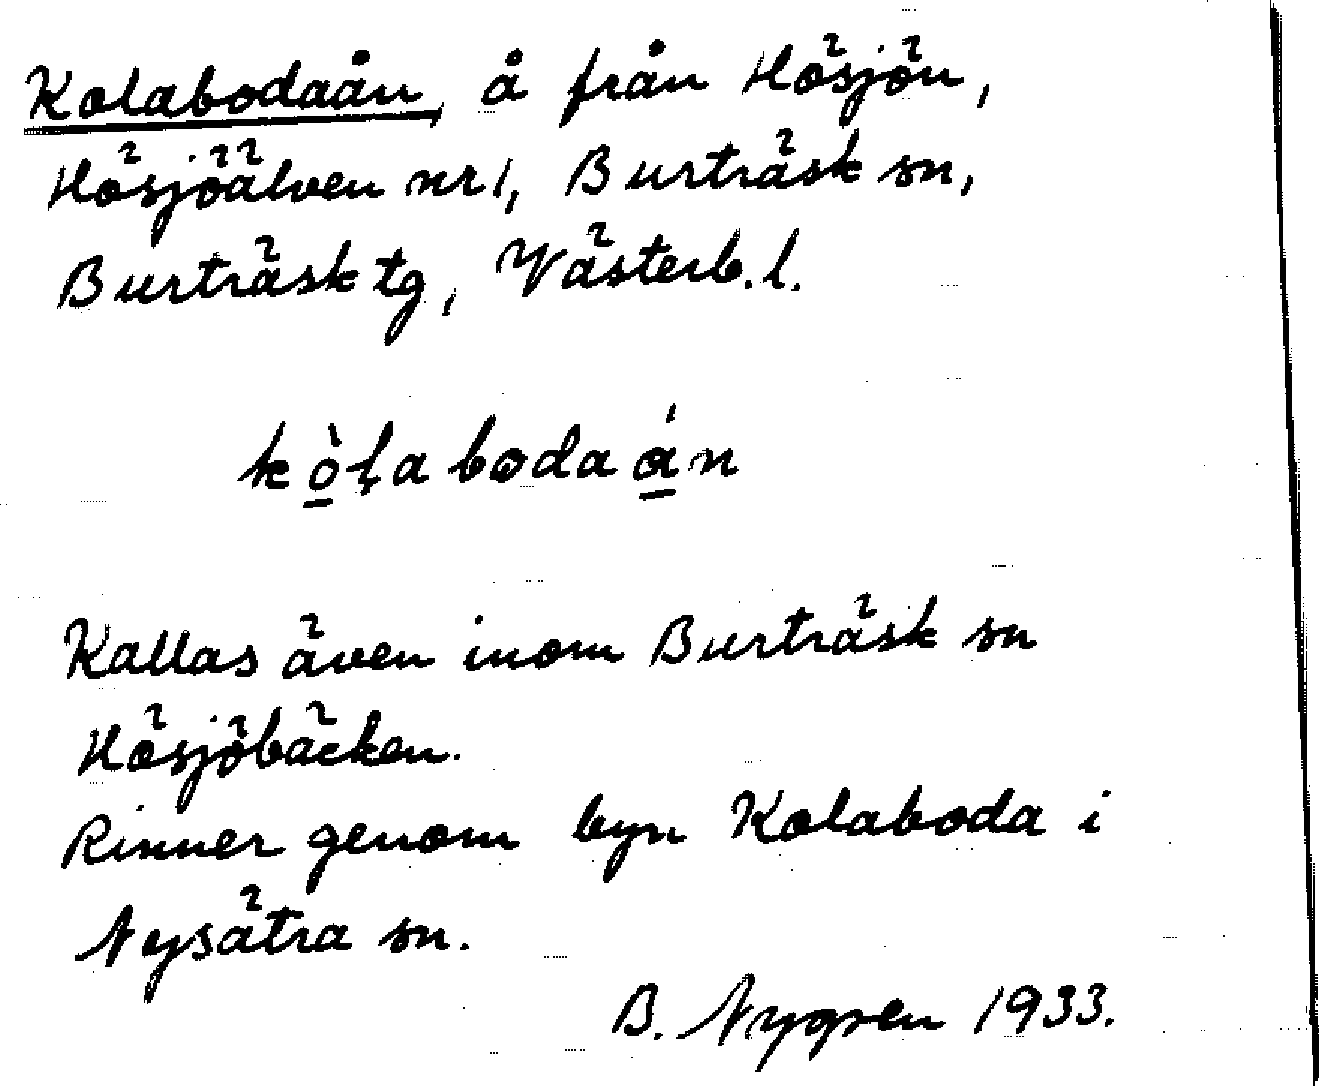 Kolabodaån, å från Hösjön,
Hösjöälven nr 1, Burträsk sn,
Burträsk tg, Västerb. l.
kò̱ḷabodaá̱n
Kallas även inom Burträsk sn
Hösjöbäcken.
Rinner genom byn Kolaboda i
Nysätra sn.
B. Nygren 1933.